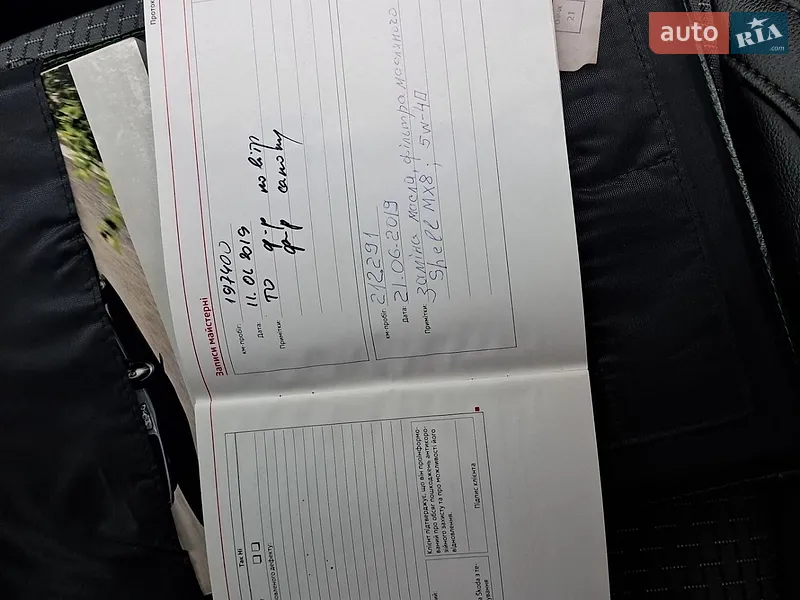 auto RIA .com
21
Проток
Записи майстерні
км-пробіг: 197400
Дата: 11.02.2019
Примітки: ТО ф-р повітр
ф-р салону
км-пробіг: 212291
Дата: 21.06.2019
Примітки: Заміна масла, фільтра масляного
Shell MX8; 5w-40
Так Ні
новленого дефекту:
Клієнт підтверджує, що він проінформо-
ваний про обсяг пошкоджень антикоро-
зійного захисту та про можливості його
відновлення.
Підпис клієнта
ий:
а Skoda з те-
ування